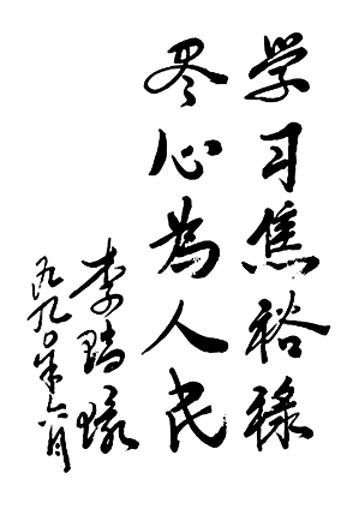 学习焦裕禄
尽心为人民
李瑞环
一九九〇年六月